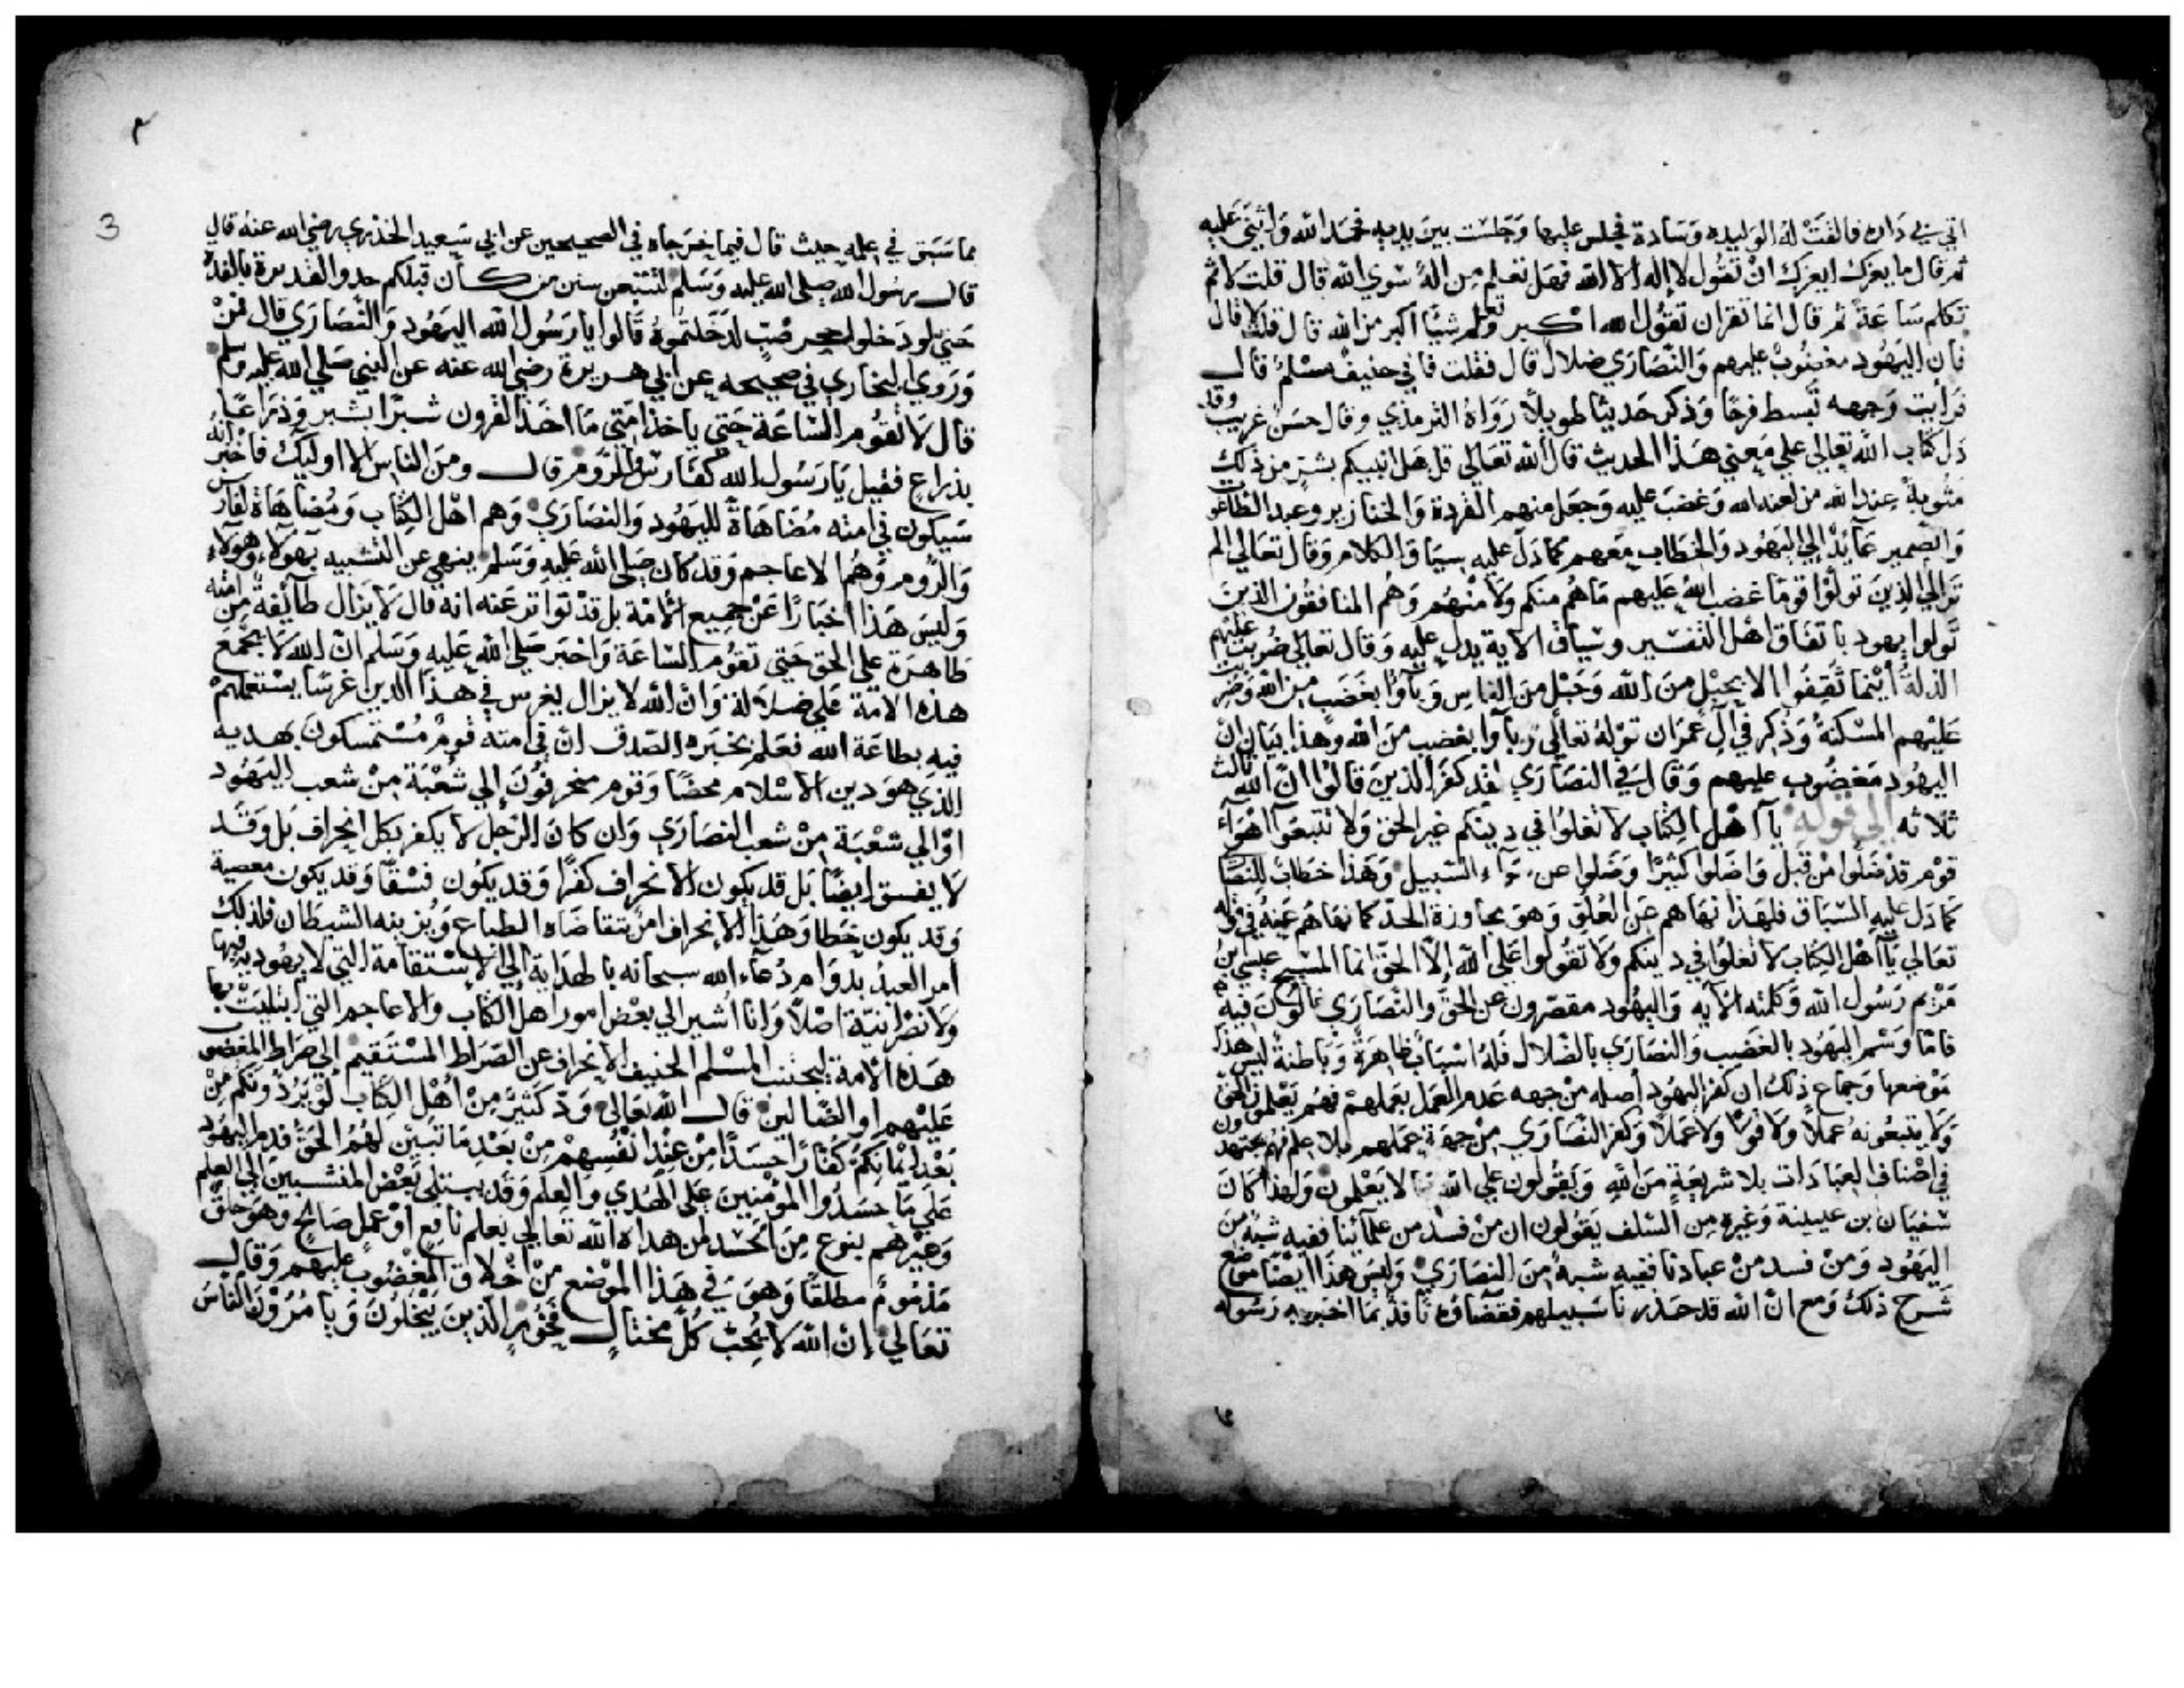 اتي بي داره فالقت له الوليده وسادة فجلس عليها وجلست بين يديه فحمد الله واثنى عليه
ثم قال ما يعزك ايعزك ان تقول لا إله الا الله فهل تعلم من اله سوي الله قال قلت لا ثم
تكلم ساعة ثم قال انما تقران تقول الله اكبر وتعلم شيئا اكبر من الله قال قلت لا قال
فان اليهود مغضوب عليهم والنصارى ضلال قال فقلت فاني حنيف مسلم قال
فرأيت وجهه تبسط فرحا وذكر حديثا طويلا رواه الترمذي وقال حسن غريب وقد
دل كتاب الله تعالي علي معني هذا الحديث قال الله تعالي قل هل انبيكم بشر من ذلك
مثوبة عند الله من لعنه الله وغضب عليه وجعل منهم القردة والخنازير وعبد الطاغوت
والضمير عايد الي اليهود والخطاب معهم كما دل عليه سياق الكلام وقال تعالي الم
تر الي الذين تولوا قوما غضب الله عليهم ما هم منكم ولا منهم وهم المنافقون الذين
تولوا يهود باتفاق اهل التفسير وسياق الاية يدل عليه وقال تعالي ضربت عليهم
الذلة أينما ثقفوا الا بحبل من الله وحبل من الناس وبآوا بغضب من الله وضربت
عليهم المسكنة وذكر في آل عمران قوله تعالي وبآوا بغضب من الله وهذا بيان ان
اليهود مغضوب عليهم وقال في النصارى لقد كفر الذين قالوا ان الله ثالث
ثلاثه الي قوله يآ اهل الكتاب لا تغلوا في دينكم غير الحق ولا تتبعوا اهوآء
قوم قد ضلوا من قبل واضلوا كثيرا وضلوا عن سوآء السبيل وهذا خطاب للنصا
كما دل عليه السياق فلهذا نهاهم عن الغلو وهو مجاوزة الحد كما نهاهم عنه في قوله
تعالي يآ اهل الكتاب لا تغلوا في دينكم ولا تقولوا على الله إلا الحق انما المسيح عيسي بن
مريم رسول الله وكلمته الآيه واليهود مقصرون عن الحق والنصاري غالون فيه
فاما وسم اليهود بالغضب والنصاري بالضلال فله اسباب ظاهرة وباطنة ليس هذا
موضعها وجماع ذلك ان كفر اليهود اصله من جهه عدم العمل بعملهم فهم يعلمون الحق
ولا يتبعونه عملا ولا قولا ولا عملا وكفر النصاري من جهة عملهم بلا علم فهم يجتهدون
في اصناف العبادات بلا شريعة من الله ويقولون علي الله ما لا يعلمون ولهذا كان
سفيان بن عيينة وغيره من السلف يقولون ان من فسد من علمآئنا ففيه شبه من
اليهود ومن فسد من عبادنا ففيه شبه من النصاري وليس هذا ايضا موضع
شرح ذلك ومع ان الله قد حذرنا سبيلهم فقضآوه نافذ بما اخبر به رسوله
٣
3
مما سبق في علمه حيث قال فيما خرجاه في الصحيحين عن ابي سعيد الخذري رضي الله عنه قال
قال رسول الله صلى الله عليه وسلم لتتبعن سنن من كان قبلكم حذو القذة بالقذة
حتي لو دخلوا جحر ضب لدخلتموه قالوا يا رسول الله اليهود والنصارى قال فمن
وروي البخاري في صحيحه عن ابي هريرة رضي الله عنه عن النبي صلي الله عليه وسلم
قال لا تقوم الساعة حتي ياخذ امتي ما اخذ القرون شبرا بشبر وذراعا
بذراع فقيل يا رسول الله كفارس والروم قال ومن الناس الا اوليك فاخبر انه
سيكون في امته مضاهاة لليهود والنصارى وهم اهل الكتاب ومضاهاة لفارس
والروم وهما الاعاجم وقد كان صلى الله عليه وسلم ينهي عن التشبيه بهولآء وهولآء
وليس هذا اخبارا عن جميع الامة بل قد تواتر عنه انه قال لا يزال طآئفة من امته
ظاهرة علي الحق حتي تقوم الساعة واخبر صلي الله عليه وسلم ان الله لا يجمع
هذه الامة علي ضلالة وان الله لا يزال يغرس في هذا الدين غرسا يستعملهم
فيه بطاعة الله فعلم بخبره الصدق ان في امته قوم مستمسكون بهديه
الذي هو دين الاسلام محضا وقوم منحرفون إلي شعبة من شعب اليهود
او الي شعبة من شعب النصارى وان كان الرجل لا يكفر بكل انحراف بل وقد
لا يفسق ايضا بل قد يكون الانحراف كفرا وقد يكون فسقا وقد يكون معصية
وقد يكون خطا وهذا الانحراف امر تتقاضاه الطباع ويزينه الشيطان فلذلك
امر العبد بدوام دعآء الله سبحانه بالهداية إلي الاستقامة التي لا يهودية فيها
ولا نصرانية اصلا وانا اشير الي بعض امور اهل الكتاب والاعاجم التي ابتليت بها
هذه الامة ليجتنب المسلم الحنيف الانحراف عن الصراط المستقيم إلي صراط المغضوب
عليهم او الضالين قال الله تعالى ود كثير من أهل الكتاب لو يردونكم من
بعد إيمانكم كفارا حسدا من عند انفسهم من بعد ما تبين لهم الحق فذم اليهود
علي ما حسدوا المؤمنين على الهدي والعلم وقد يبتلى بعض المنتسبين الي العلم
وغيرهم بنوع من الحسد لمن هداه الله تعالي بعلم نافع او عمل صالح وهو خلق
مذموم مطلقا وهو في هذا الموضع من اخلاق المغضوب عليهم وقال
تعالي إن الله لا يحب كل مختال فخور الذين يبخلون ويامرون الناس